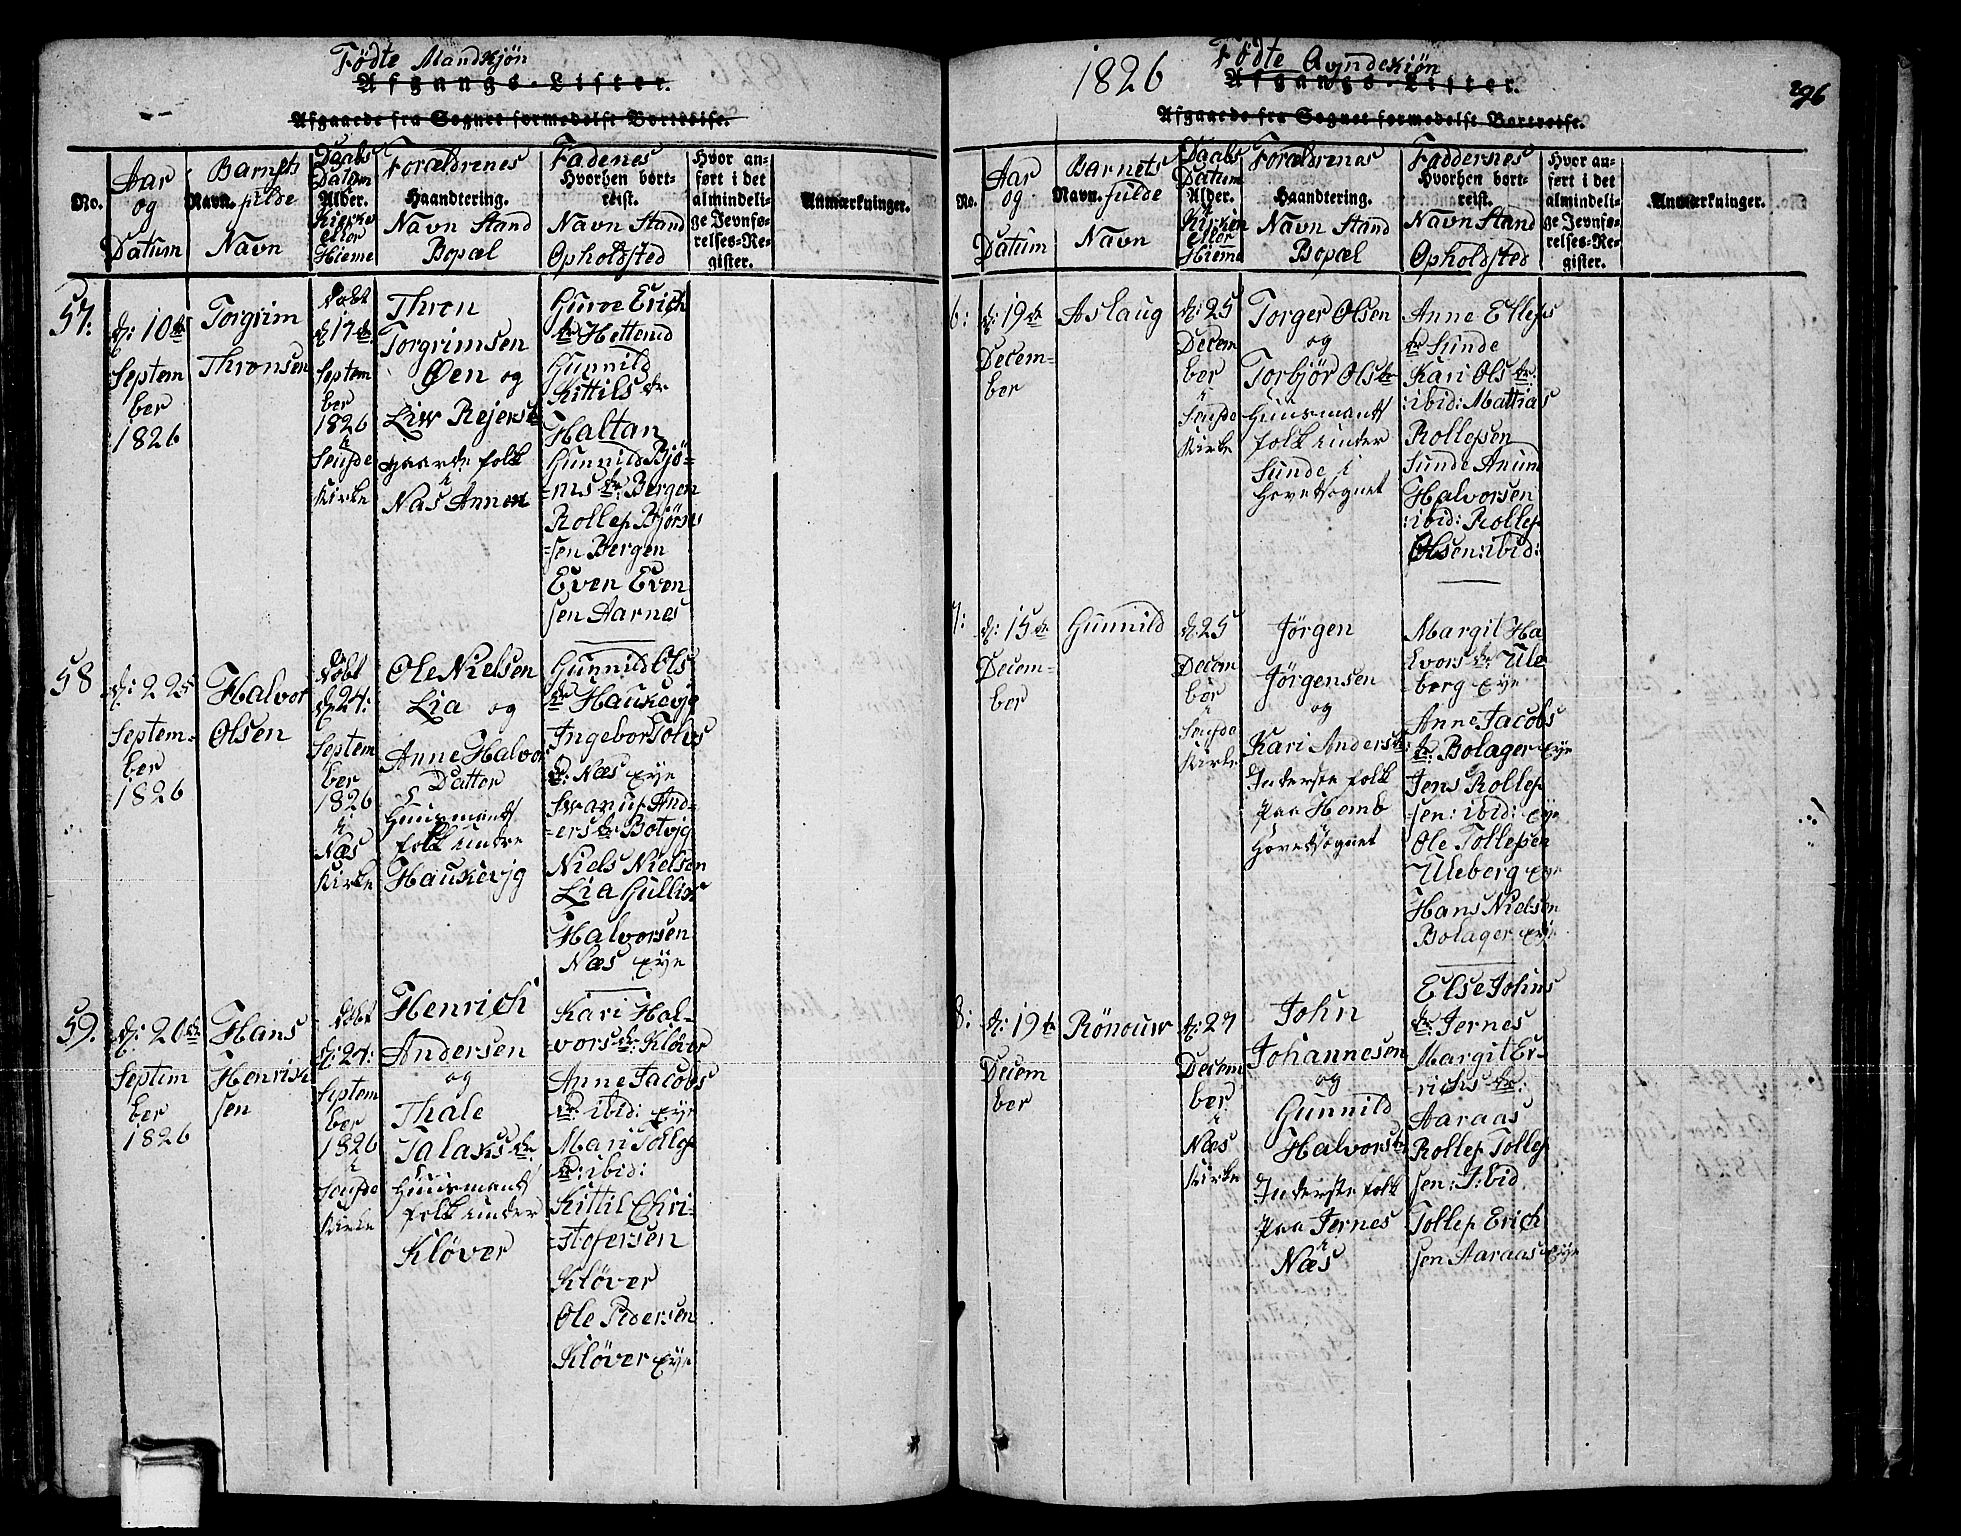 Födte Mandkjön
Afgangs-Lister.
Afgaaede fra Sognet formedelst Bortreise.
No.
Aar
og
Datum
Barnets
Navn. fulde
Navn
Daabs
Datum
Alder.
Kirke
eller
Hieme
Forældrenes
Haandtering.
Navn Stand
Bopæl
Fadenes
Hvorhen bort-
reist.
Navn Stand
Opholdsted
Hvor an-
ført i det
almindeli-
ge Jevnfø-
relses-Re-
gister.
Anmærkninger.
57:
d: 10de
Septem
ber
1826
Torgrim
Thronsen
Döbt
d 17de
Septem
ber
1826
i
Soufde
Kirke
Thron
Torgrimsen
Øen og
Liw Rejersd
gaarde folk
i
Næs Annex
Gurve Erich
dr Hettenid
Gunnild
Kittils dr
Haltan
Gunnild Bjö-
=rns dr: Bergen
Rollef Bjørn
=sen Bergen
Even Even
sen Aarnes
58
d: 22de
Septem=
ber
1826
Halvor
Olsen
Döbt
d: 24:
Septem
ber
1826
i
Næs
Kirke
Ole Nielsen
Lia og
Anne Halvor
s Datter
Huusmands
folk undre
Haukevjg
Gunnild Ols
dr Haukevjg
Ingebor Tolvs
dr: Næs eye
And-
=ers dr Botvjg
Niels Nielsen
Lia Gullik
Halvorsen
Næs eye
59.
d: 20de
Septem
ber
1826
Hans
Henrich
sen
Döbt
d: 24:
Septem
ber
1826
i
Soufde
Kirke
Henrich
Andersen
og
Thale
Talaks dr
Huusmands
folk under
Kløver
Kari Hal-
=vors dr: Kløver
Anne Jacobs
dr: ibid: eye
Mari Tollef
dr: ibid:
Kittil Chri-
=stofersen
Kløver
Ole Pedersen
Kløver eye
1826
Födte Qvindekiön
Afgangs-Lister.
Afgaaede fra Sognet formedelst Bortreise.
296
No.
Aar
og
Datum
Barnets
Navn. fulde
Navn
Daabs
Datum
Alder.
Kirken
eller
Hieme
Forældrenes
Haandtering.
Navn Stand
Bopæl
Faddernes
Hvorhen bort-
reist.
Navn Stand
Opholdsted
Hvor an-
ført i det
almindeli-
ge Jevnfø-
relses-Re-
gister.
Anmærkninger.
6:
d: 19de
Decem=
ber
Aslaug
d: 25
Decem
ber
i
Soufde
Kirke
Torger Olsen
og
Torbjör Ols dr
Huusmands
folk under
Sunde i
Hovetsognet
Anne Ellefs
dr Sunde
Kari Ols dr:
:ibid: Mattias
Rollefsen
Sunde Anund
Halvorsen
:ibid: Rollef
Olsen: ibid:
7:
d: 15de
Decem=
ber
Gunnild
d: 25
Decem
ber
i
Soufde
Kirke
Jörgen
Jörgensen
og
Kari Anders dr
Inderste folk
paa Hemb
Hovetsognet
Margit Ha
lvors dr Ule
berg eye
Anne Jacobs
dr: Bolager eye
Jens Rollef
sen: ibid: eye
Ole Tollefsen
Uleberg eye
Hans Nielsen
Bolager eye
8:
d: 19de
Decem
ber
Rönouw
d: 27
Decem
ber
i
Næs
Kirke
John
Johannesen
og
Gunnild
Halvors dr
Inderste folk
paa Jernes
i
Næs
Else Johns
dr: Jernes
Margit Er-
richs dr:
Aaraas
Rollef Tollef
sen: Ibid
Tollef Erich
sen Aaraas eye